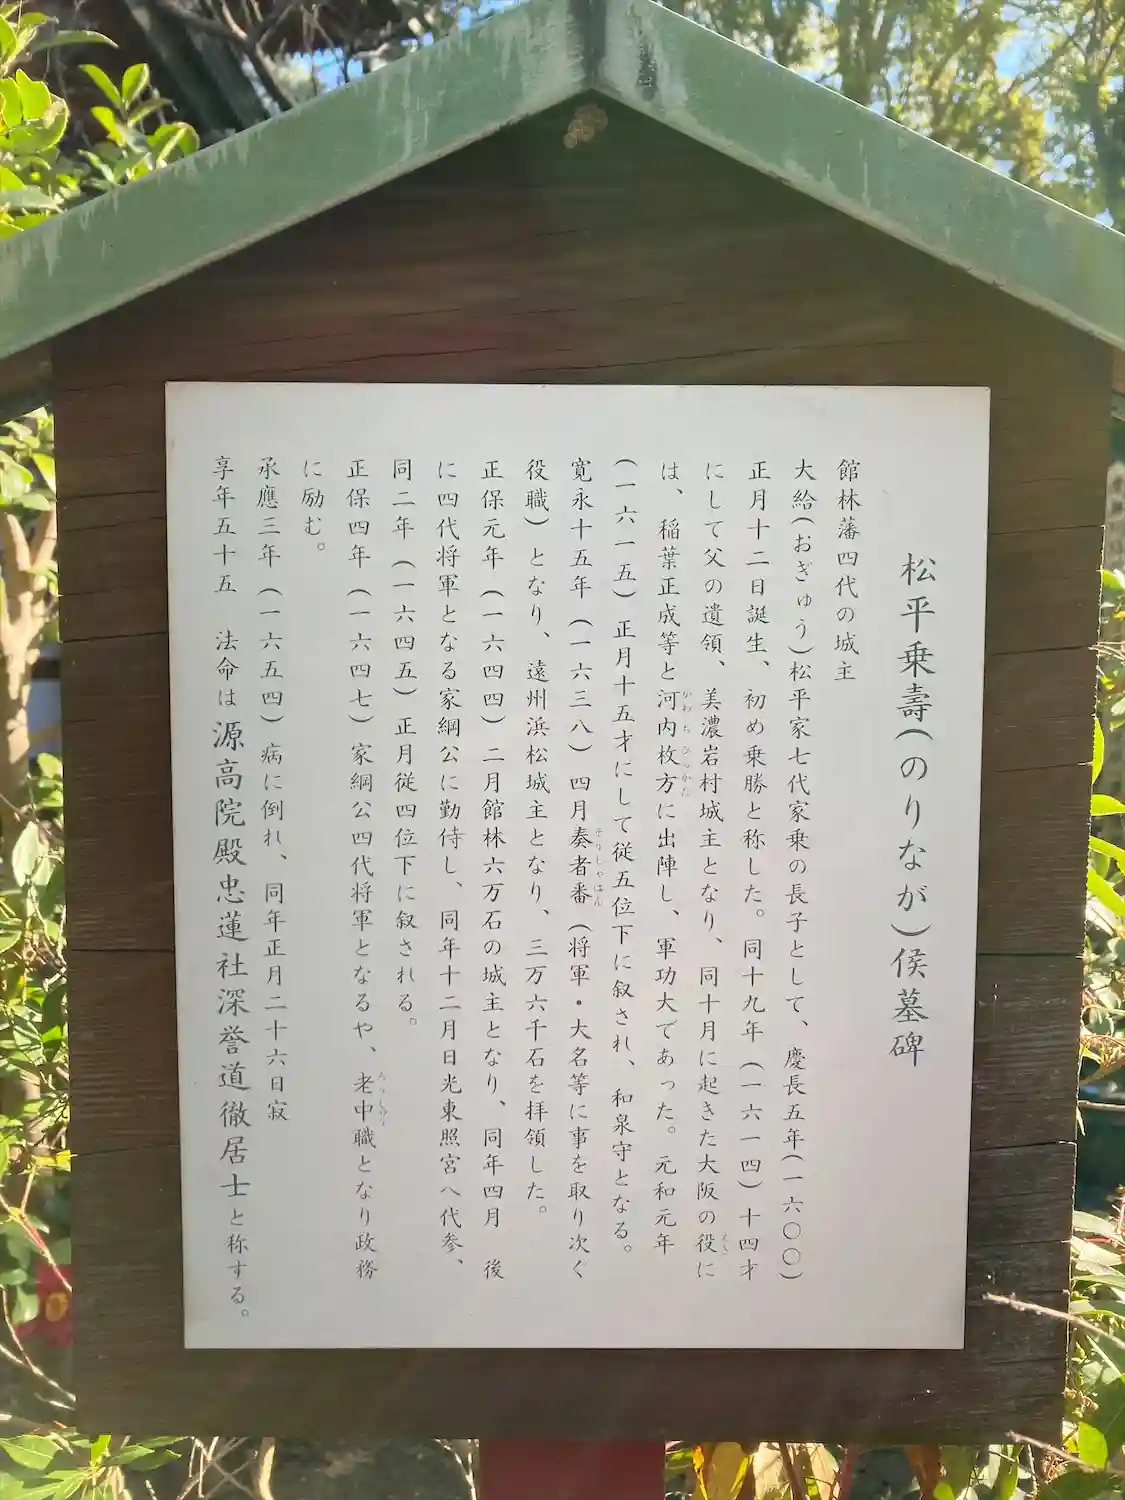 松平乗壽(のりなが)侯墓碑
館林藩四代の城主
大給(おぎゅう)松平家七代家乗の長子として、慶長五年(一六〇〇)
正月十二日誕生、初め乗勝と称した。同十九年(一六一四)十四才
にして父の遺領、美濃岩村城主となり、同十月に起きた大阪の役に
は、稲葉正成等と河内枚方に出陣し、軍功大であった。元和元年
(一六一五)正月十五才にして従五位下に叙され、和泉守となる。
寛永十五年(一六三八)四月奏者番(将軍・大名等に事を取り次ぐ
役職)となり、遠州浜松城主となり、三万六千石を拝領した。
正保元年(一六四四)二月館林六万石の城主となり、同年四月 後
に四代将軍となる家綱公に勤侍し、同年十二月日光東照宮へ代参、
同二年(一六四五)正月従四位下に叙される。
正保四年(一六四七)家綱公四代将軍となるや、老中職となり政務
に励む。
承應三年(一六五四)病に倒れ、同年正月二十六日寂
享年五十五 法命は源高院殿忠蓮社深誉道徹居士と称する。